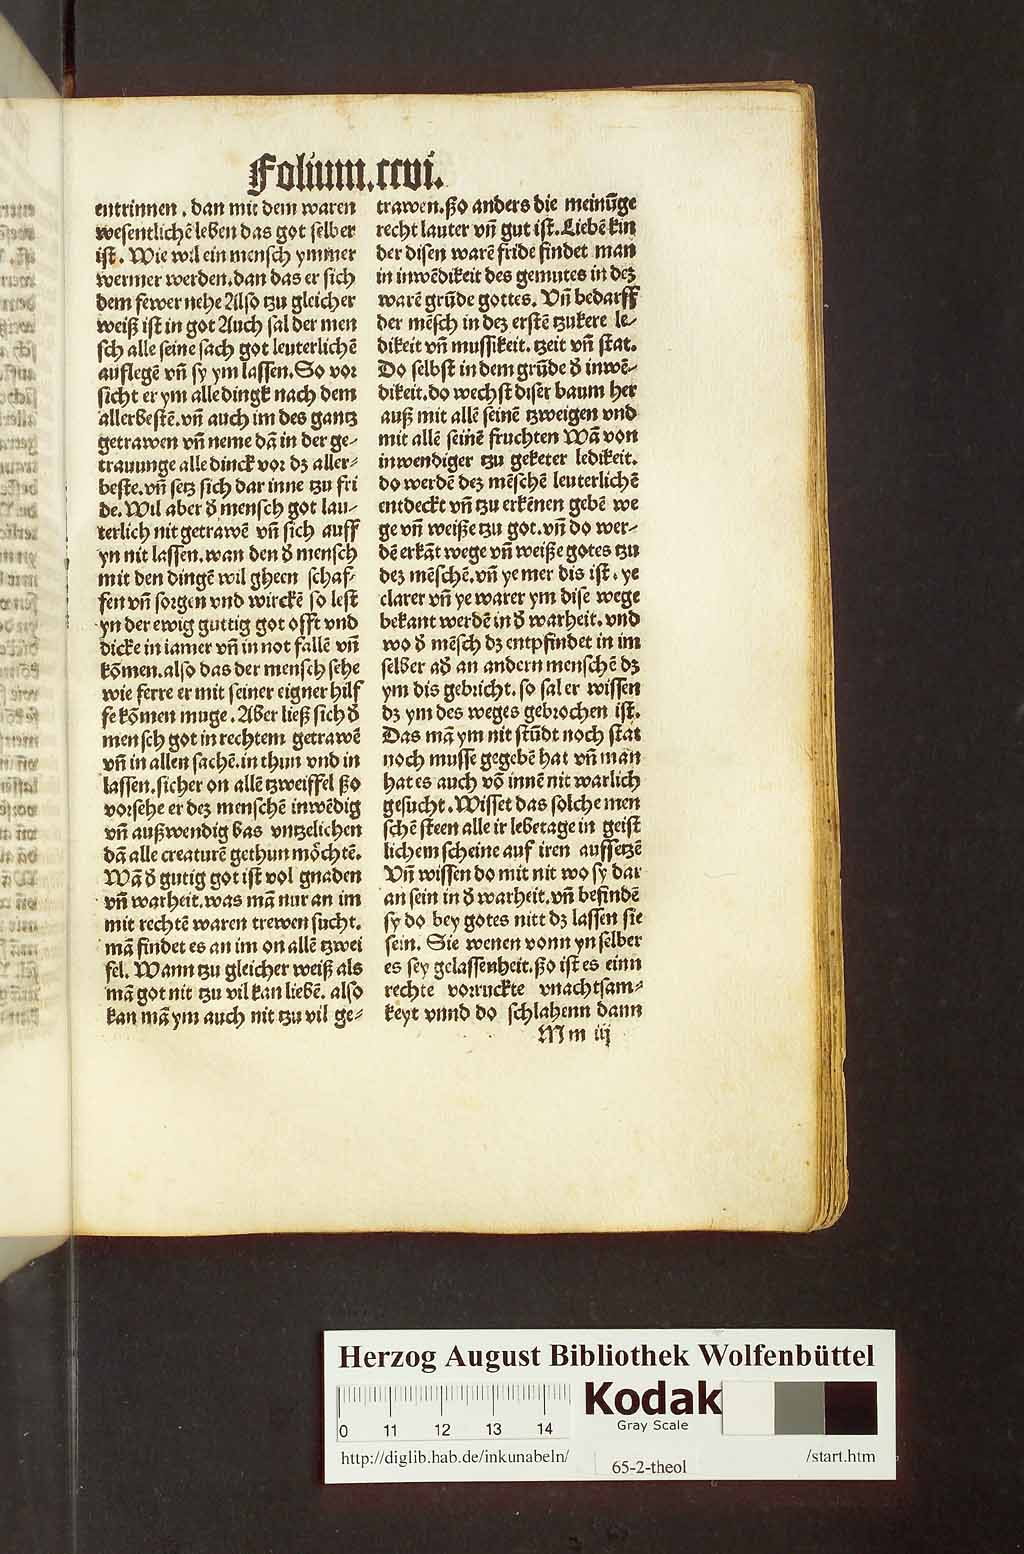 Folium.ccvi.
entrinnen . dan mit dem waren
wesentlichē leben das got selber
ist . Wie wil ein mensch ymmer
wermer werden . dan das er sich
dem fewer nehe Also tzu gleicher
weiß ist in got Auch sal der men
sch alle seine sach got leuterlichē
auflegē vñ sy ym lassen . So vor
sicht er ym alle dingk nach dem
allerbestē . vñ auch im des gantz
getrawen vñ neme dā in der ge-
trauunge alle dinck vor dz aller-
beste . vñ setz sich dar inne tzu fri
de . Wil aber d̄ mensch got lau-
terlich nit getrawē vñ sich auff
yn nit lassen . wan den d̄ mensch
mit den dingē wil gheen schaf-
fen vñ sorgen vnd wirckē so lest
yn der ewig guttig got offt vnd
dicke in iamer vñ in not fallē vñ
kōmen . also das der mensch sehe
wie ferre er mit seiner eigner hilf
fe kōmen muge . Aber ließ sich d̄
mensch got in rechtem getrawē
vñ in allen sachē . in thun vnd in
lassen . sicher on allē tzweiffel ßo
vorsehe er dez menschē inwēdig
vñ außwendig bas vntzelichen
dā alle creaturē gethun moͤchtē .
Wā d̄ gutig got ist vol gnaden
vñ warheit . was mā nur an im
mit rechtē waren trewen sucht .
mā findet es an im on allē tzwei
fel . Wann tzu gleicher weiß als
mā got nit tzu vil kan liebē . also
kan mā ym auch nit tzu vil ge-
trawen . ßo anders die meinūge
recht lauter vñ gut ist . Liebē kin
der disen warē fride findet man
in inwēdikeit des gemutes in dez
warē grūde gottes . Vñ bedarff
der mēsch in dez erstē tzukere le-
dikeit vñ mussikeit . tzeit vñ stat .
Do selbst in dem grūde d̄ inwē-
dikeit . do wechst diser baum her
auß mit allē seinē tzweigen vnd
mit allē seinē fruchten Wā von
inwendiger tzu geketer ledikeit .
do werdē dez mēschē leuterlichē
entdeckt vñ tzu erkēnen gebē we
ge vñ weiße tzu got . vñ do wer-
dē erkāt wege vñ weiße gotes tzu
dez mēschē . vñ ye mer dis ist . ye
clarer vñ ye warer ym dise wege
bekant werdē in d̄ warheit . vnd
wo d̄ mēsch dz entpfindet in im
selber ad̄ an andern menschē dz
ym dis gebricht . so sal er wissen
dz ym des weges gebrochen ist .
Das mā ym nit stūdt noch stat
noch musse gegebē hat vñ man
hat es auch vō innē nit warlich
gesucht . Wisset das solche men
schē steen alle ir lebetage in geist
lichem scheine auf iren auffsetzē
Vñ wissen do mit nit wo sy dar
an sein in d̄ warheit . vñ befindē
sy do bey gotes nitt dz lassen sie
sein . Sie wenen vonn yn selber
es sey gelassenheit . ßo ist es einn
rechte vorruckte vnachtsam-
keyt vnnd do schlahenn dann
Mm iij
Herzog August Bibliothek Wolfenbüttel
0 11 12 13 14
Kodak
Gray Scale
http://diglib.hab.de/inkunabeln/
65-2-theol
/start.htm